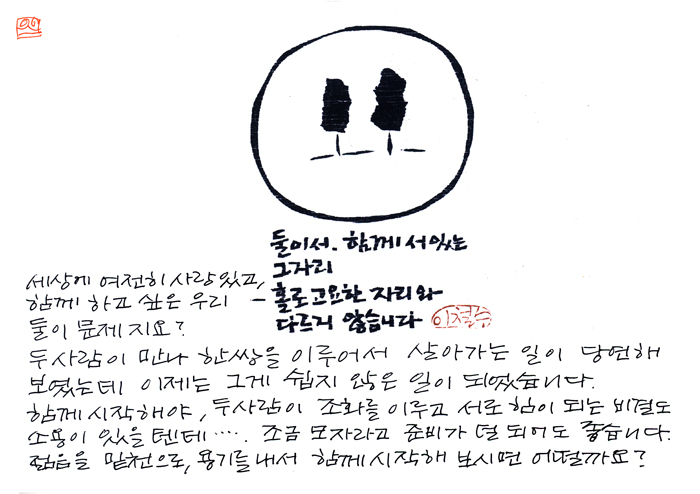 둘이서. 함께 서있는
그자리
홀로 고요한 자리와
다르지 않습니다 이철수
세상에 여전히 사랑있고,
함께 하고 싶은 우리 –
둘이 문제지요?
두사람이 만나 한쌍을 이루어서 살아가는 일이 당연해
보였는데 이제는 그게 쉽지 않은 일이 되었습니다.
함께 시작해야, 두사람이 조화를 이루고 서로 힘이 되는 비결도
소용이 있을텐데····. 조금 모자라고 준비가 덜 되어도 좋습니다.
젊음을 밑천으로, 용기를 내서 함께 시작해 보시면 어떨까요?